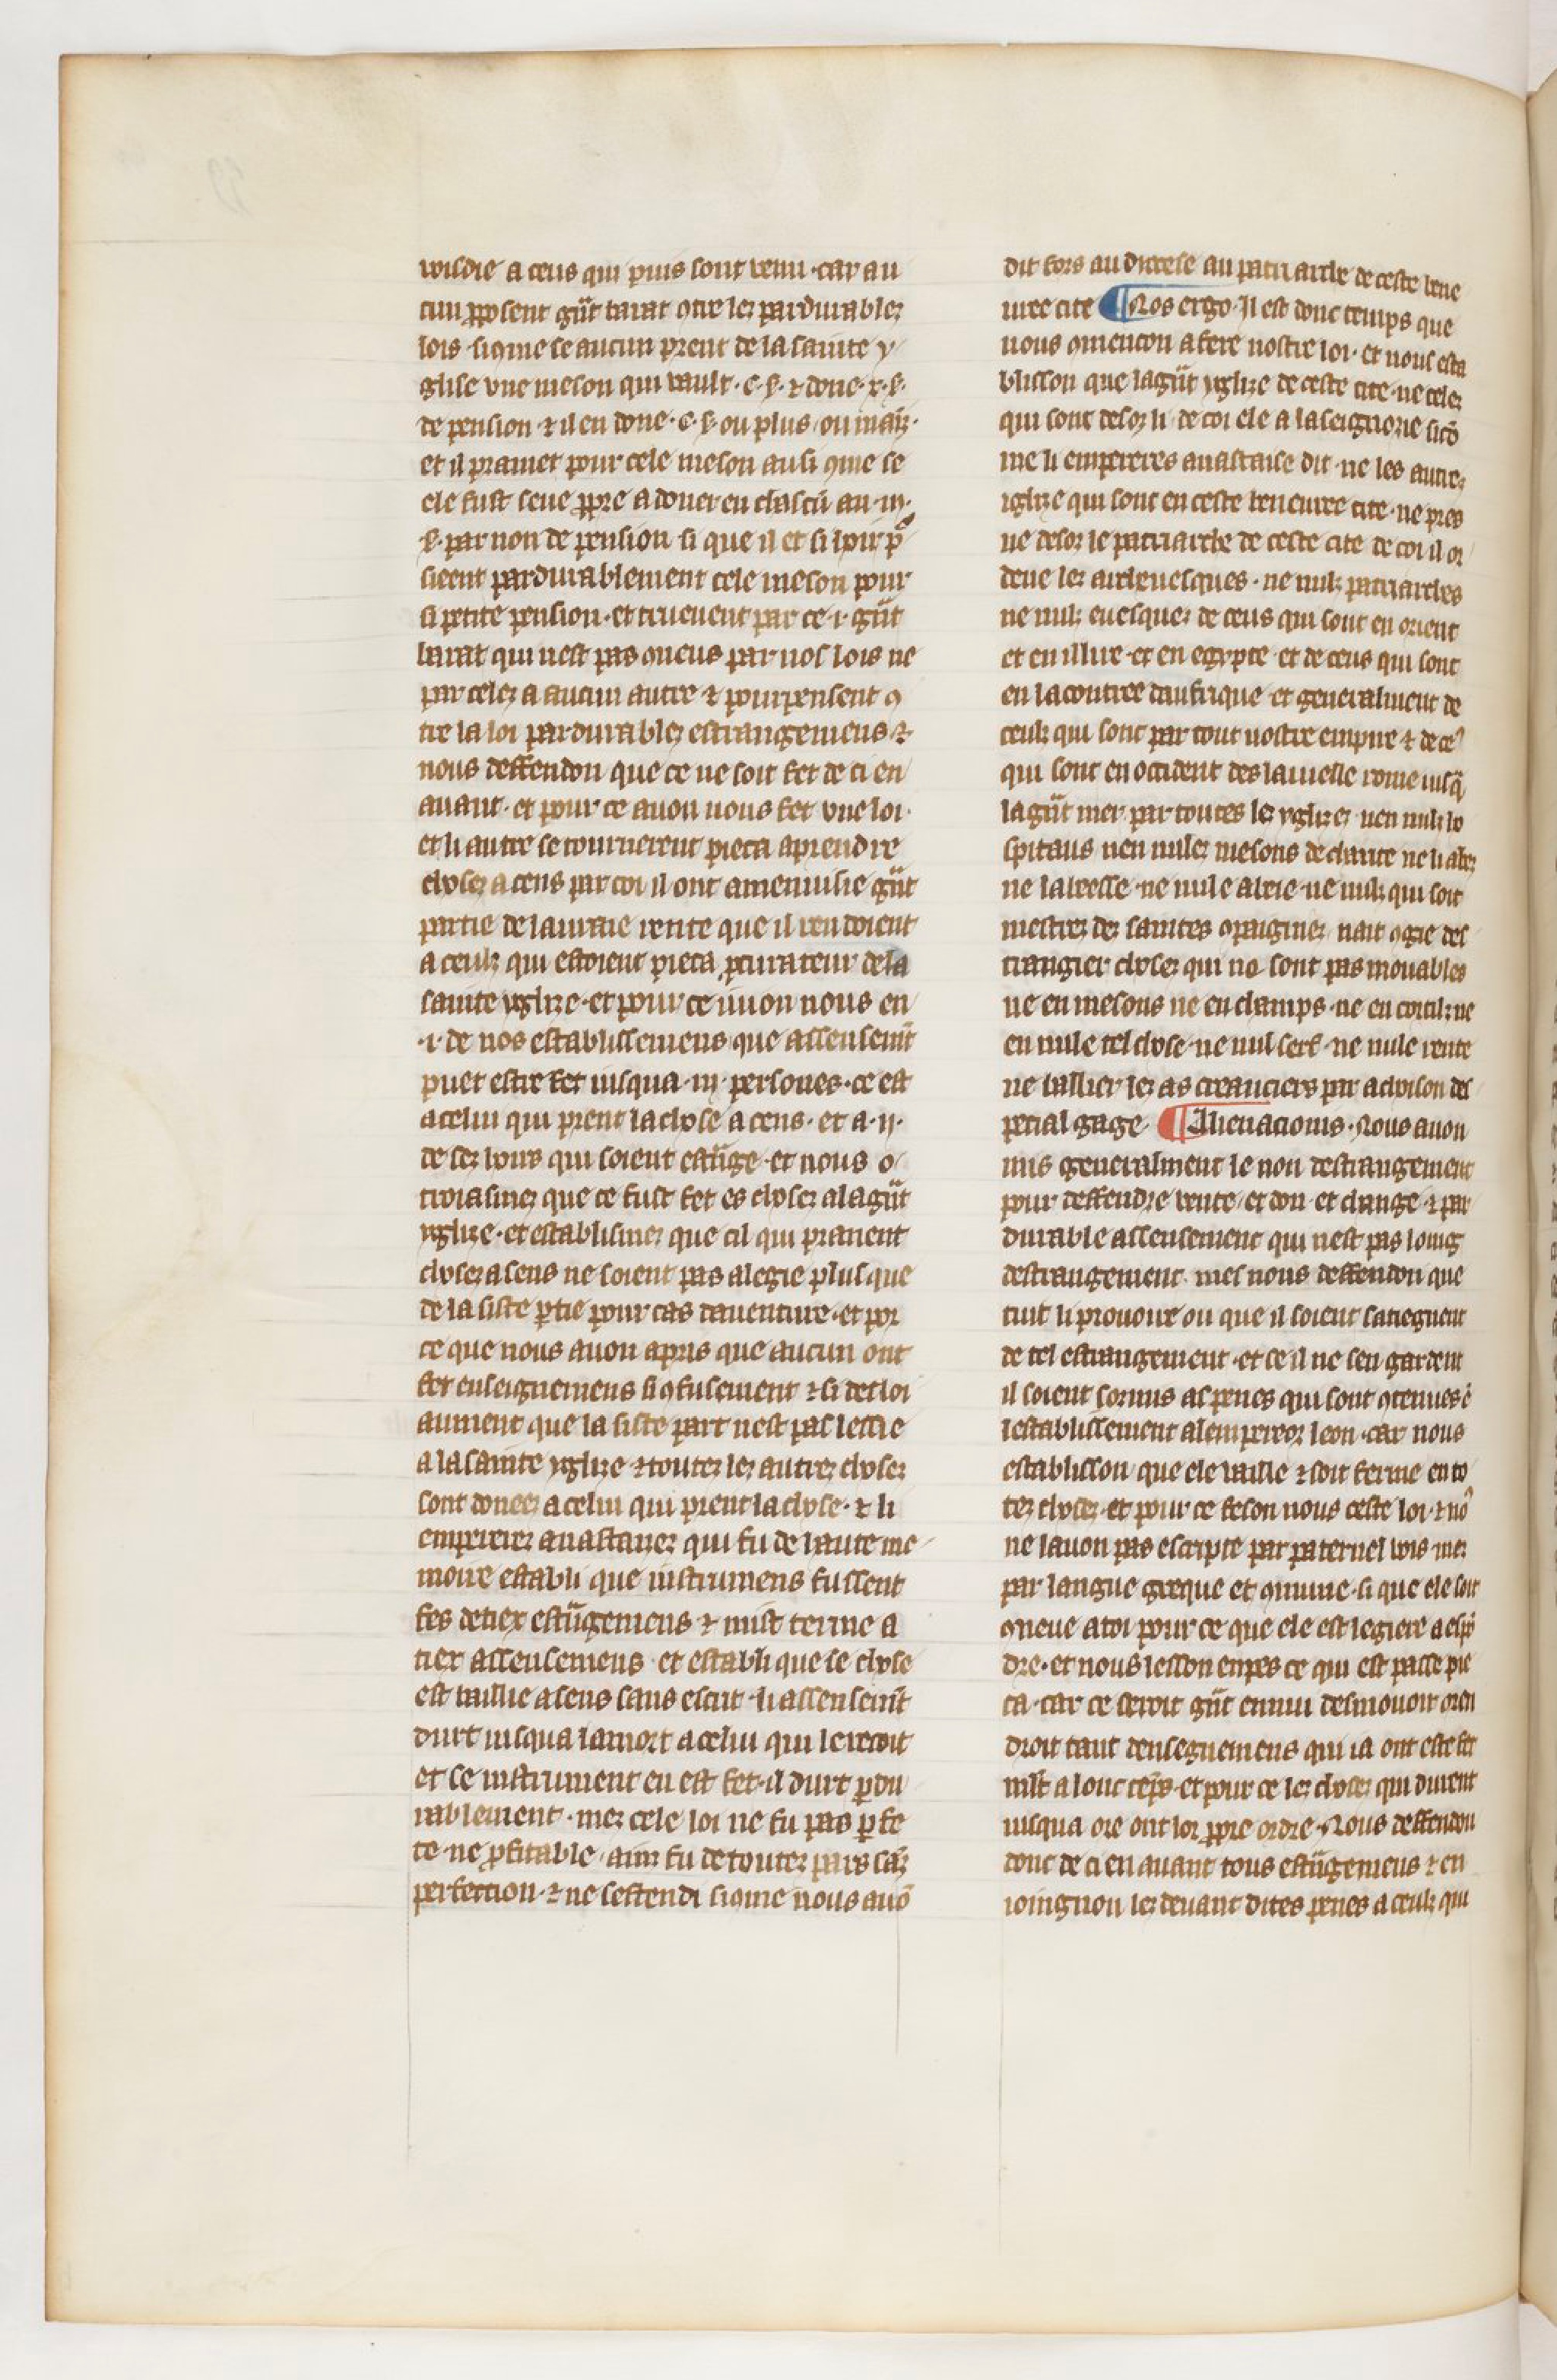 voisdie a ceus qui puis sont venu · car au
cun pposent gñt barat ꝯtre les pardurables
lois · siꝯme se aucun prent de la sainte y
glise vne meson qui vault · c · s · ⁊ done · x · s ·
de pension ⁊ il en done · c · s · ou plus ou mains ·
et il pramet pour cele meson ausi ꝯme se
ele fust seue ppre a doner en chascũ an · iij ·
s · par non de pension si que il et si hoir por
sieent pardurablement cele meson pour
si petite pension · et truevent par ce · i · gñt
barat qui nest pas ꝯneus par nos lois ne
par celes a aucun autre ⁊ pourpensent ꝯ
tre la loi pardurables estrangemens ⁊
nous deffendon que ce ne soit fet de ci en
auant · et pour ce auon nous fet vne loi ·
et li autre se tournerent pieca a prendre
choses a cens par coi il ont amenuisie gñt
partie de la uraie rente que il rendoient
a ceulz qui estoient pieca pcurateur de la
sainte yglize · et pour ce uuon nous en
· i · de nos establissemens que assensemt
puet estre fet iusqua · iij · persones · ce est
a celui qui prent la chose a cens · et a · ij ·
de ses hoirs qui soient estñge · et nous o
troiasmes que ce fust fet es choses a la gñt
yglize · et establismes que cil qui pranent
choses a sens ne soient pas alegie plus que
de la siste ptie pour cas dauenture · et por
ce que nous auon apris que aucun ont
fet enseignemens si ꝯfusement ⁊ si desloi
aument que la siste part nest pas lessie
a la sainte yglize ⁊ toutes les autres choses
sont donees a celui qui prent la chose · ⁊ li
empereres anastaises qui fu de haute me
moire establi que instrumens fussent
fes de tiex estñgemens ⁊ mist terme a
tiex assensemens · et establi que se chose
est baillie a sens sans escrit · li assensemt
durt iusqua la mort a celui qui le recoit
et se instrument en est fet · il durt pdu
rablement · mes cele loi ne fu pas pfe
te ne pfitable · ains fu de toutes pars sanz
perfection · ⁊ ne sestendi siꝯme nous auõ
dit fors au dioceise au patriarche de ceste bene
uree cite ¶ Nos ergo · Il est donc temps que
nous ꝯmencon a fere nostre loi · et nous esta
blisson que la gñt yglize de ceste cite · ne celes
qui sont desoz li · de coi ele a la seignorie sicõ
me li empereres anastaise dit · ne les autres
iglize qui sont en ceste beneuree cite · ne pres
ne desoz le patriarche de ceste cite de coi il or
dene les archeuesques · ne nulz patriarches
ne nulz euesques de ceus qui sont en orient
et en illire · et en egypte · et de ceus qui sont
en la contree daufrique · et generalment de
ceulz qui sont par tout nostre empire ⁊ de ceus
qui sont en occident des la uielle rome iusq̃
la gñt mer · par toutes les yglizes · nen nulz ho
spitaus nen nules mesons de charite ne li abes
ne labeesse · ne nule abeie · ne nulz qui soit
mestres des saintes ꝯpaignies nait ꝯgie des
trangier choses qui ne sont pas mouables
ne en mesons ne en champs · ne en cortilz ne
en nule tel chose · ne nul serf · ne nule rente
ne baillier les as creanciers par achoison des
pecial gage · ¶ Alienacionis · Nous auon
mis generalment le non destrangement
pour deffendre vente · et don · et change · ⁊ par
durable assensement qui nest pas loing
destrangement · mes nous deffendon que
tuit li prouoire ou que il soient satiegnent
de tel estrangement · et se il ne sen gardent
il soient sozmis as penes qui sont ꝯtenues ẽ
lestablissement a lempereor leon · car nous
establisson que ele vaille ⁊ soit ferme en to
tes choses · et pour ce feson nous ceste loi · ⁊ nos
ne lauon pas escripte par paternel uois mes
par langue greque et ꝯmune · si que ele soit
ꝯneue a toi pour ce que ele est legiere a espñ
dre · et nous lesson enpes ce qui est passe pie
ca · car ce seroit gñt ennui desmouoir oren
droit tant densegnemens qui ia ont este fet
mlt a lonc teps · et pour ce les choses qui durent
iusqua ore ont lor ppre ordre · Nous deffendon
donc de ci en auant tous estñgemens ⁊ en
ioingnon les deuant dites penes a ceulz qui